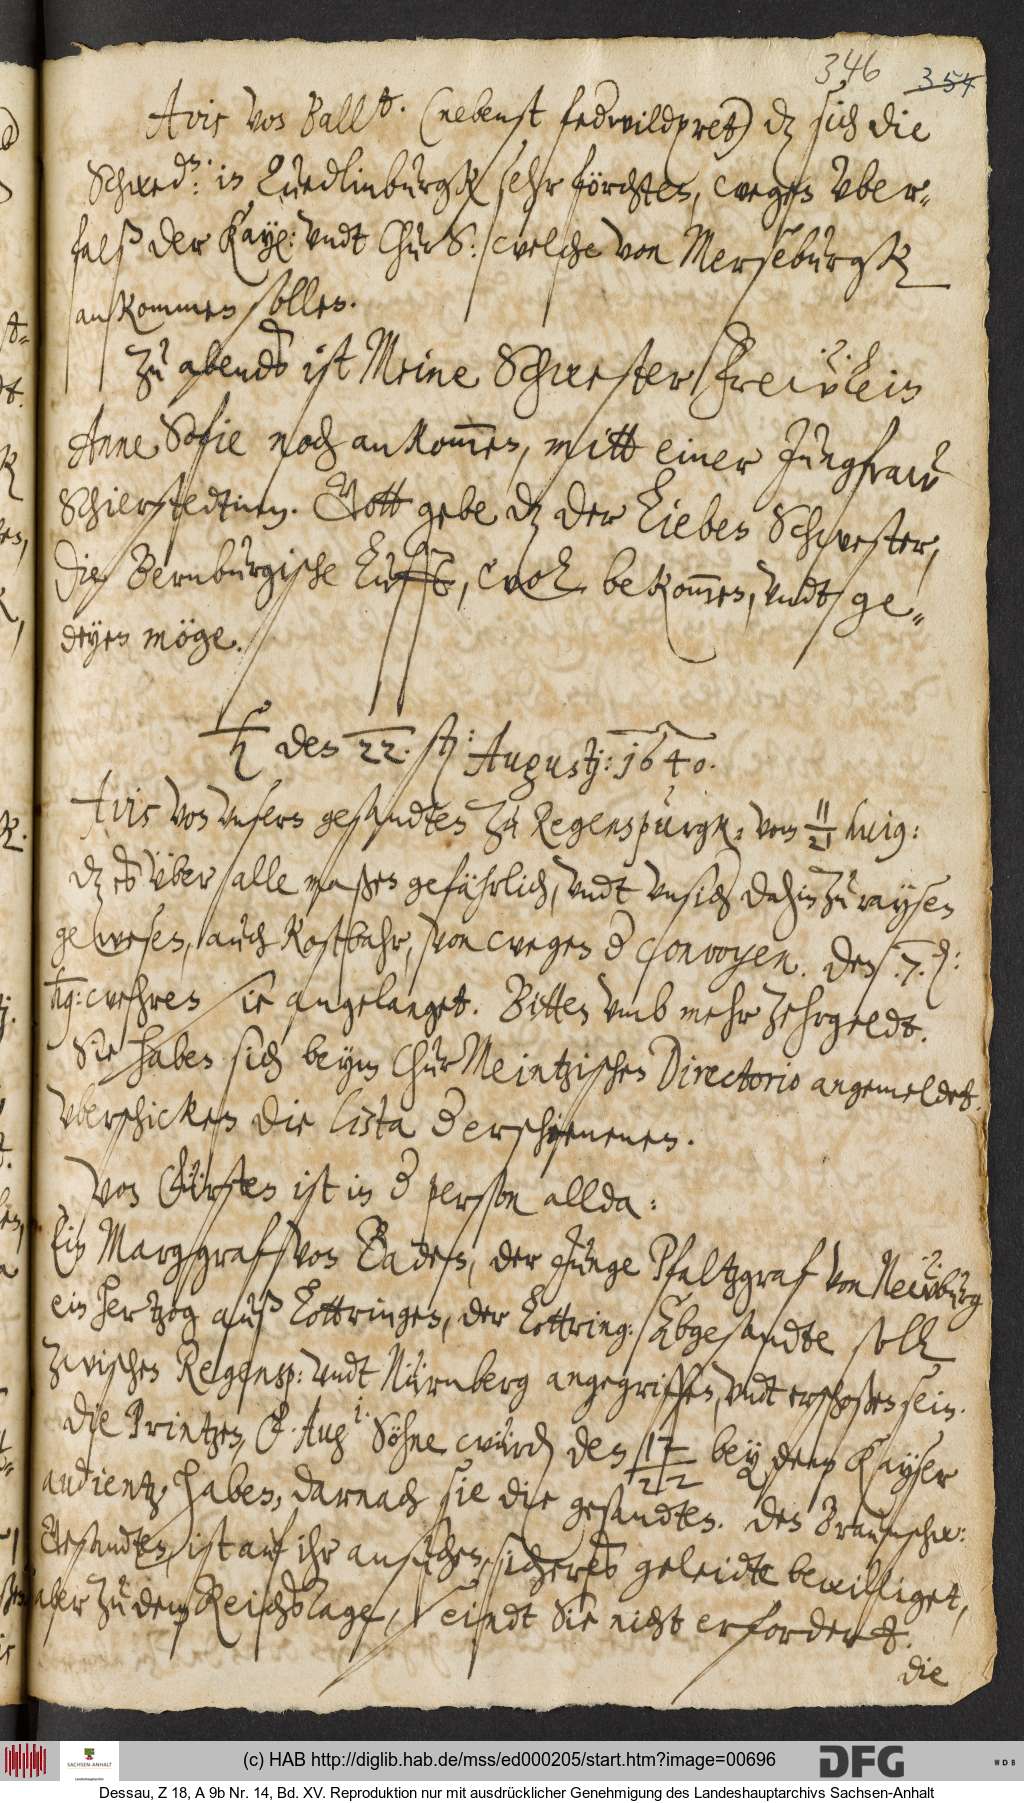 346 354
Avis von Ballst. (nebenst fedrwildpret) dz sich die
Schwedn: in Quedlinburgk sehr förchten, wegen vber-
falß der Kayß: vndt ChurS: welche von Merseburgk
ankommen sollen.
Zu abends ist Meine Schwester Freẅlein
Anne Sofie noch ankom̄en, mitt einer Jungfraw
Schierstedtinn. Gott gebe dz der Lieben Schwester,
die Bernburgische Lufft, wol bekom̄en, vndt ge-
deyen möge.
♄ den 22. sten: Augustj: 1640.
Avis von vnsern gesandten zu Regenspurgk: vom 11/21 huig:
dz es vber alle maßen gefährlich, vndt vnsich dahin zu raysen
gewesen, auch kostbahr, von wegen d convoyen. den .7. d:
hig: wehren sie angelanget. Bitten vmb mehr zehrgeldt.
Sie haben sich beym ChurMeintzischen Directorio angemeldet.
vberschicken die lista d erschienenen.
Von Fürsten ist in d person allda:
Ein Marggraf von Baden, der Junge Pfaltzgraf von Neẅburg
ein hertzog auß Lottringen, der Lottring: Abgesandte soll
zwischen Regensp: vndt Nürnberg angegriffen, vndt erschoßen sein.
die Printzen, F. Augi: Söhne würden den 17/22 bey dem Kayser
audientz haben, darnach sie die gesandten. den Braunschw:
Gesandten, ist auf ihr ansuchen, sicheres geleidte bewilliget,
aber zu dem Reichstage, seindt Sie nicht erfordert.
die
(c) HAB http://diglib.hab.de/mss/ed000205/start.htm?image=00696
SACHSEN-ANHALT
DFG
WDB
Dessau, Z 18, A 9b Nr. 14, Bd. XV. Reproduktion nur mit ausdrücklicher Genehmigung des Landeshauptarchivs Sachsen-Anhalt